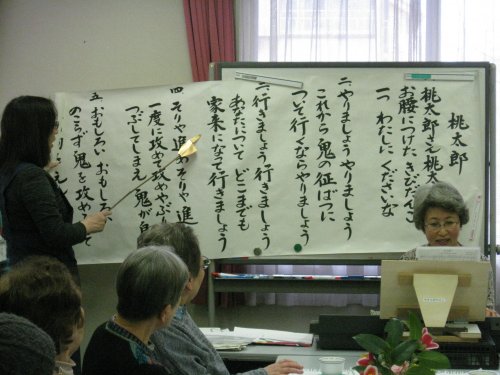 桃太郎
桃太郎さん桃太
お腰につけたきびだんご
一つわたしにくださいな
二、やりましょうやりましょう
これから鬼の征ばつに
ついて行くならやりましょう
三、行きましょう行きましょう
あなたについてどこまでも
家来になって行きましょう
四、そりや進めそりや進
一度に攻めて攻めやぶり
つぶしてしまえ鬼が島
五、おもしろいおもしろ
のこらず鬼を攻め